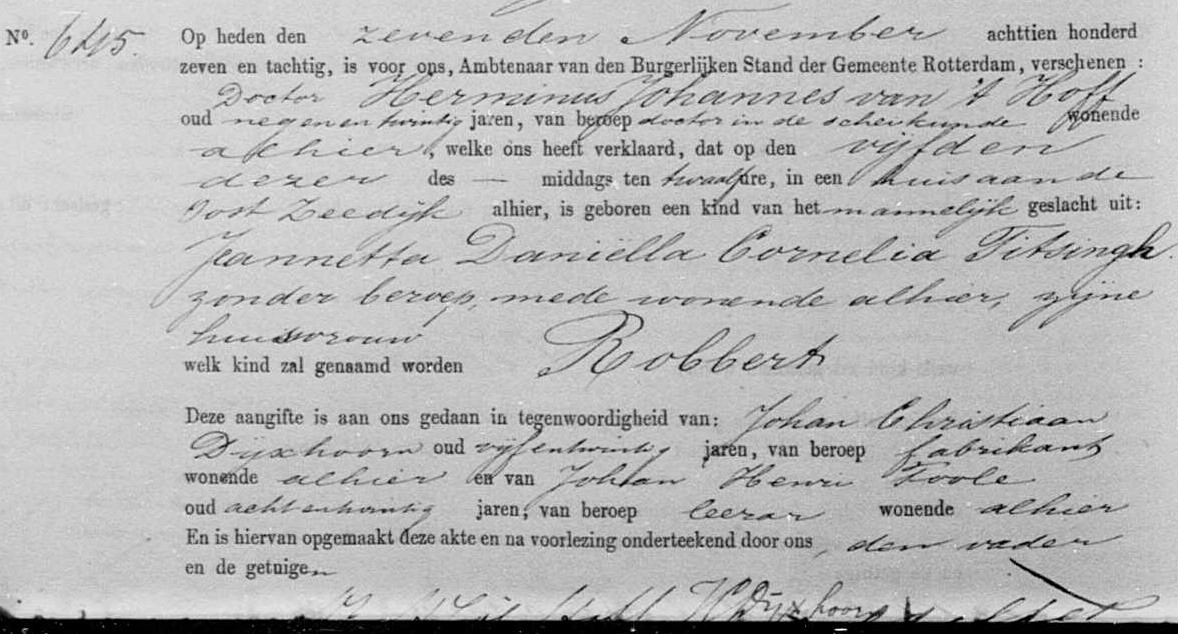 No. 645. Op heden den zevenden November achttien honderd
zeven en tachtig, is voor ons, Ambtenaar van den Burgerlijken Stand der Gemeente Rotterdam, verschenen :
Doctor Herminus Johannes van 't Hoff
oud negenentwintig jaren, van beroep doctor in de scheikunde wonende
alhier, welke ons heeft verklaard, dat op den vijfden
dezer des — middags ten twaalf ure, in een huis aan de
Oost Zeedijk alhier, is geboren een kind van het mannelijk geslacht uit:
Jeannetta Daniëlla Cornelia Titsingh.
zonder beroep, mede wonende alhier, zijne
huisvrouw
welk kind zal genaamd worden Robbert
Deze aangifte is aan ons gedaan in tegenwoordigheid van: Johan Christiaan
Dyxhoorn oud vijfentwintig jaren, van beroep fabrikant
wonende alhier en van Johan Henri Toole
oud achtentwintig jaren, van beroep leeraar wonende alhier
En is hiervan opgemaakt deze akte en na voorlezing onderteekend door ons, den vader
en de getuigen
Dyxhoorn